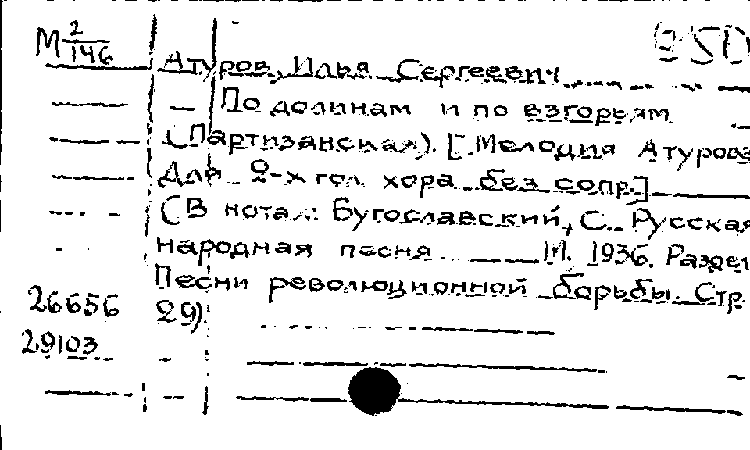 М 2/146
Атуров, Илья Сергеевич
По долинам и по взгорьям
(Партизанская). [Мелодия Атурова
Для 2-х гол. хора без сопр.]
(В нотах: Бугославский, С. Русская
народная песня М. 1936. Раздел
Песни революционной борьбы. Стр.
26656 29)
29103